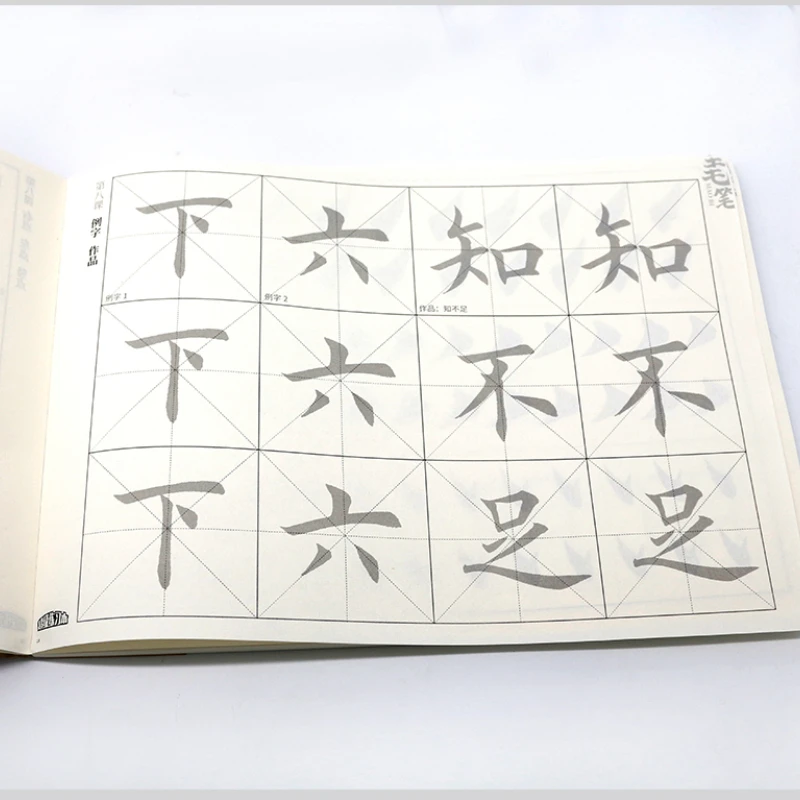 第八课 例字 作品
毛笔
下 六 知 知
例字1 例字2 作品：知不足
下 六 不 不
下 六 足 足